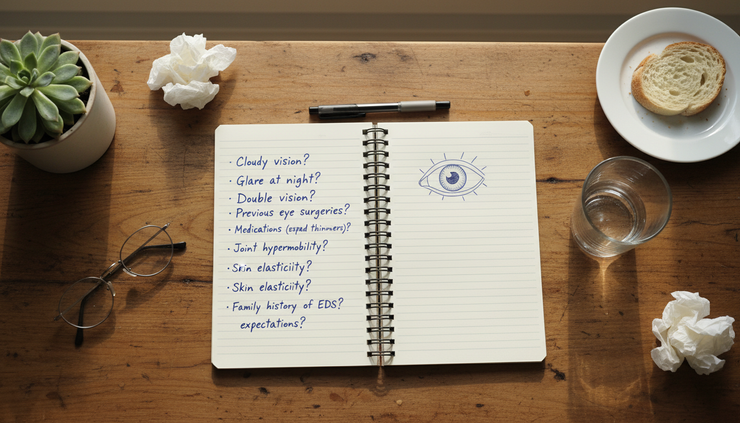 · Cloudy vision?
· Glare at night?
· Double vision?
· Previous eye surgeries?
· Medications (esped thinners)?
· Joint hypermobility?
· Skin elasticiity?
· Skin elasticiity?
· Family history of EDS?
expectations?